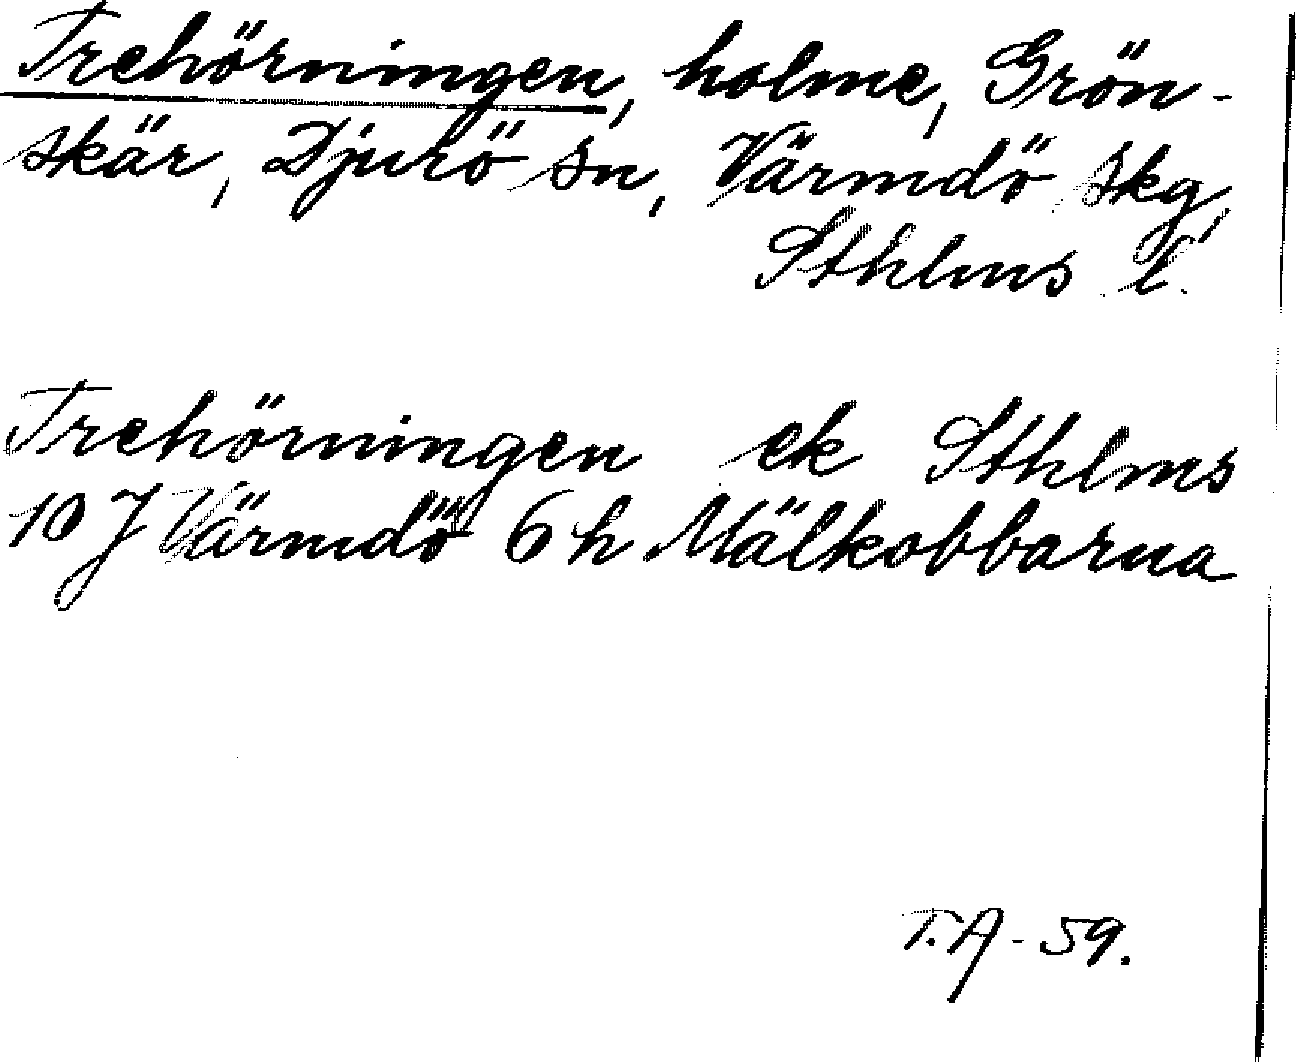 Trehörningen, holme, Grön-
skär, Djurö sn, Värmdö skg,
Sthlms l.
Trehörningen ek Sthlms
10 J Värmdö 6 h Mälkobbarna
T.A - 59.